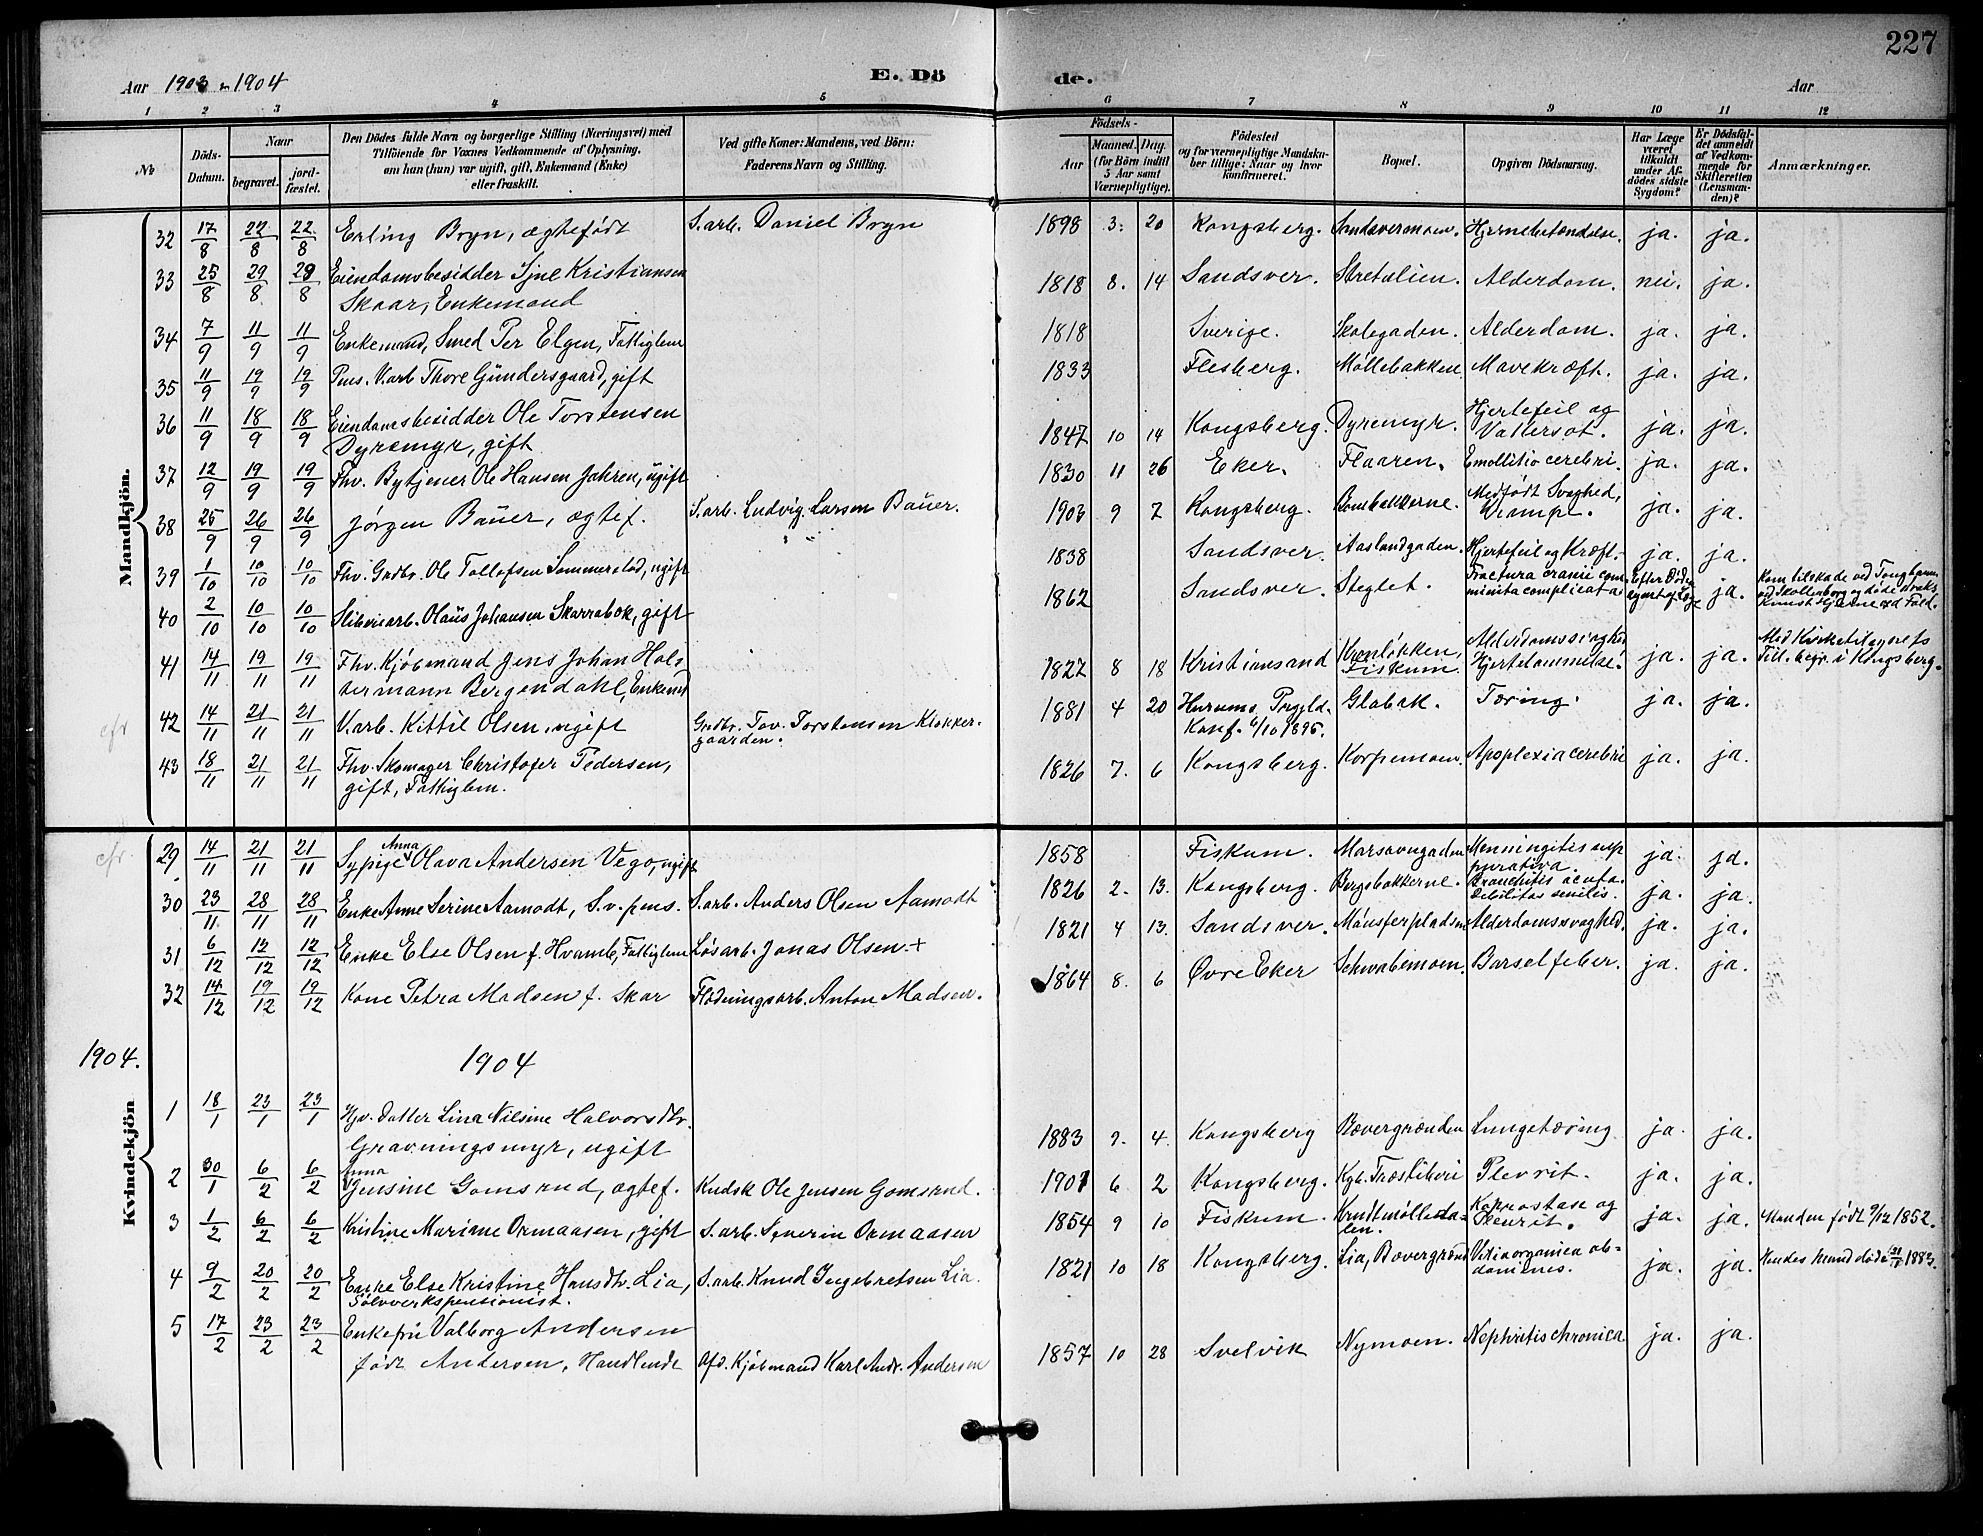 227
Aar 1903 & 1904 E. Dö de. Aar
1 2 3 4 5 6 7 8 9 10 11 12
№
Döds-Datum.
Naar
begravet.
jordfæstet.
Den Dödes fulde Navn og borgerlige Stilling (Næringsvei) med
Tilföiende for Voxnes Vedkommende af Oplysning,
om han (hun) var ugift, gift, Enkemand (Enke)
eller fraskilt.
Ved gifte Koner: Mandens, ved Börn:
Faderens Navn og Stilling.
Födsels-
Aar
Maaned. Dag.
(for Börn indtil
5 Aar samt
Værnepligtige).
Födested
og for værnepligtige Mandskaber tillige: Naar og hvor
konfirmeret.
Bopæl.
Opgiven Dödsaarsag.
Har Læge
været
tilkaldt
under Afdödes sidste
Sygdom?
Er Dödsfaldet anmeldt
af Vedkommende for
Skifteretten
(Lensmanden)?
Anmærkninger.
Mandkjön.
32 17/8 22/8 22/8 Erling Bryn, ægtefödt S.arb. Daniel Bryn 1898 3. 20 Kongsberg. Sandsvermoen. Hjernebetændelse. ja. ja.
33 25/8 29/8 29/8 Eiendomsbesidder Syne Kristiansen
Skaar, Enkemand 1818 8. 14 Sandsver. Stretelien. Alderdom. nei. ja.
34 7/9 11/9 11/9 Enkemand, Smed Per Elgen, Fattiglem 1818 Sverige. Skolegaden. Alderdom. ja. ja.
35 11/9 19/9 19/9 Pens. V.arb Thore Gundersgaard, gift 1833 Flesberg. Møllebakken. Mavekræft. ja. ja.
36 11/9 18/9 18/9 Eiendomsbesidder Ole Torstensen
Dyremyr, gift 1847 10 14 Kongsberg. Dyremyr. Hjertefeil og
Vattersot. ja. ja.
37 12/9 19/9 19/9 Fhv. Bytjener Ole Hansen Jahren, ugift 1830 11 26 Eker. Flaaren. Emollitio cerebri. ja. ja.
38 25/9 26/9 26/9 Jørgen Bauer, ægtef. S.arb. Ludvig Larsen Bauer. 1903 9 7 Kongsberg. Bombakkerne. Medfödt Svaghed,
Krampe. ja. ja.
39 1/10 10/10 10/10 Fhv. Grdbr. Ole Tollofsen Sommerstad, ugift 1838 Sandsver. Aaslandgaden. Hjertefeil og Kræft. ja. ja.
40 2/10 10/10 10/10 Sliberiarb. Olaus Johansen Skarrabok, gift 1862 Sandsver. Steglet. Fractura cranii comminuta complicata. Efter Døden ja. Kom tilskade ved
ved Skollenborg og døde straks.
41 14/11 19/11 19/11 Fhv. Kjøbmand Jens Johan Holstermann Bergendahl, Enkemd 1827 8 18 Kristiansand Kvernløkken,
Fiskum. Alderdomssvaghed
Hjertelammelse. ja. ja. Med Kirketilsynets
Till. begr. i Kongsberg.
cfr 42 14/11 21/11 21/11 V.arb. Kittil Olsen, ugift Grdbr. Tov. Torstensen Klokkergaarden. 1881 4 20 Hurums Prgjeld.
Konf. 6/10 1895. Glabak. Tæring. ja. ja.
43 18/11 21/11 21/11 Fhv. Skomager Christofer Pedersen,
gift, Fattiglem. 1826 7. 6 Kongsberg. Korpemoen. Apoplexia cerebri ja. ja.
cfr. 29. 14/11 21/11 21/11 Sypige Anna Olava Andersen Vego, ugift 1858 Fiskum. Marsovngaden Menningitis suppurativa. ja. ja.
30 23/11 28/11 28/11 Enke Anne Serine Aamodt, S.v. pens. S.arb. Anders Olsen Aamodt 1826 2. 13. Kongsberg. Bergsbakkerne. Bronchitis acuta.
Debilitas senilis. ja. ja.
31 6/12 12/12 12/12 Enke Else Olsen f. Hvamb, Fattiglem Løsarb. Jonas Olsen + 1821 4 13. Sandsver. Mønsterpladsen Alderdomssvaghed. ja. ja.
32 14/12 19/12 19/12 Kone Petra Madsen f. Skar Flødningsarb. Anton Madsen. 1864 8. 6 Øvre Eker Schwabemoen. Barselfeber. ja. ja.
1904. 1904
Kvindekjön
1 18/1 23/1 23/1 Hjv. Datter Lina Nilsine Halvorsdtr.
Gravningsmyr, ugift 1883 7. 4. Kongsberg Bævergrænden Lungetæring. ja. ja.
2 30/1 6/2 6/2 Anna
Jensine Gomsrud, ægtef. Kudsk Ole Jensen Gomsrud. 1901 6 2 Kongsberg. Kgb. Træsliberi Plevrit. ja. ja.
3 1/2 6/2 6/2 Kristine Marime Ormaasen, gift S.arb. Severin Ormaasen 1854 9 10 Fiskum. Krudtmølledalen. Koprostase og
Pleurit. ja. ja. Manden født 9/12 1852.
4 9/2 20/2 20/2 Enke Else Kristine Hansdtr. Lia,
Sølvverkspensionist. S.arb. Knud Ingebretsen Lia. 1821 10 18 Kongsberg. Lia, Bævergrænd Vitia organica abdominis. ja. ja. Hendes Mand døde 1883.
5 17/2 23/2 23/2 Enkefru Valborg Andersen
født Andersen, Handlende Afd. Kjøbmand Karl Andr. Andersen 1857 10 28 Svelvik Nymoen. Nephritis chronica ja. ja.